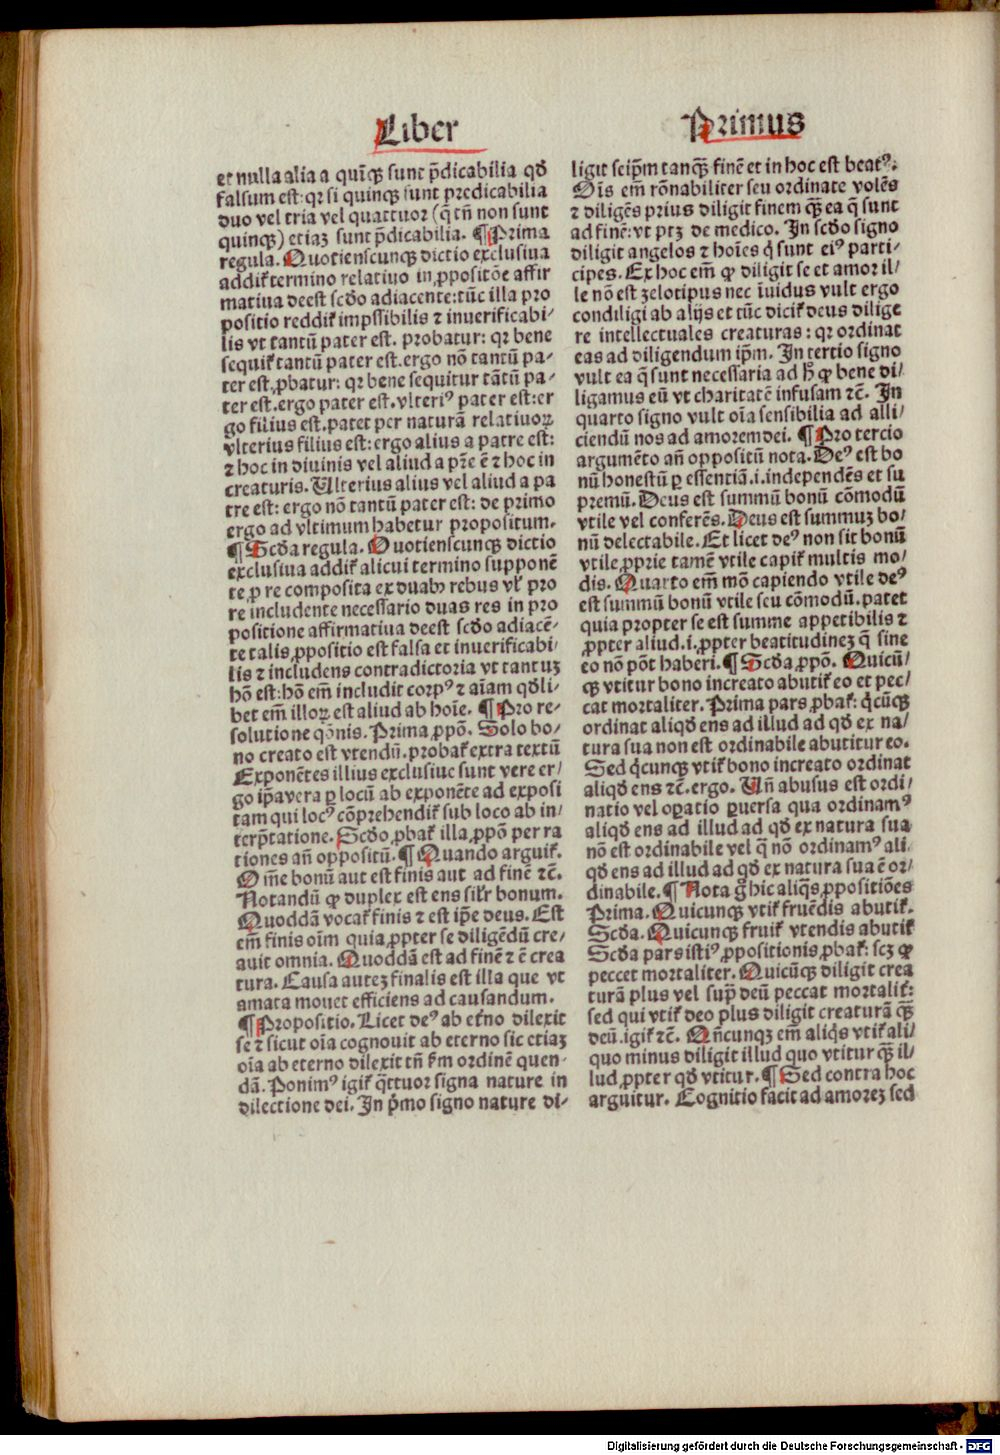 Liber
Primus
et nulla alia a quīqꝫ sunt p̄dicabilia qď
falsum est: qr si quinqꝫ sunt predicabilia
duo vel tria vel quattuor (q̄ tñ non sunt
quinqꝫ) etiaꝫ sunt p̄dicabilia. ¶ Prima
regula. Quotienscunqꝫ dictio exclusiua
addit᷑ termino relatiuo in ꝓpositōe affir
matiua deest scďo adiacente: tūc illa pro
positio reddit᷑ impssibilis ⁊ inuerificabi⸗
lis vt tantū pater est. probatur: qr bene
sequit᷑ tantū pater est. ergo nō tantū pa⸗
ter est. ꝓbatur: qr bene sequitur tātū pa⸗
ter est. ergo pater est. vlteriꝰ pater est: er
go filius est. patet per naturā relatiuoꝝ
vlterius filius est: ergo alius a patre est:
⁊ hoc in diuinis vel aliud a pr̄e ē ⁊ hoc in
creaturis. Ulterius alius vel aliud a pa
tre est: ergo nō tantū pater est: de primo
ergo ad vltimum habetur propositum.
¶ Scďa regula. Quotienscunqꝫ dictio
exclusiua addit᷑ alicui termino supponē
te ꝓ re composita ex duabꝰ rebus vl̛ pro
re includente necessario duas res in pro
positione affirmatiua deest scďo adiacē⸗
te talis ꝓpositio est falsa et inuerificabi⸗
lis ⁊ includens contradictoria vt tantuꝫ
hō est: hō em̄ includit corpꝰ ⁊ aīam qďli⸗
bet em̄ illoꝝ est aliud ab hoīe. ¶ Pro re⸗
solutione qōnis. Prima ꝓpō. Solo bo⸗
no creato est vtendū. probat᷑ extra textū
Exponētes illius exclusiue sunt vere er⸗
go ip̄a vera ꝑ locū ab exponēte ad exposi
tam qui locꝰ cōprehendit᷑ sub loco ab in⸗
terp̄tatione. Scďo ꝓbat᷑ illa ꝓpō per ra
tiones añ oppositū. ¶ Quando arguit᷑.
Om̄e bonū aut est finis aut ad finē ⁊c̄.
Notandū ꝙ duplex est ens sil̛r bonum.
Quoddā vocat᷑ finis ⁊ est ip̄e deus. Est
em̄ finis oīm quia ꝓpter se diligēdū cre⸗
auit omnia. Quoddā est ad finē ⁊ ē crea
tura. Causa auteꝫ finalis est illa que vt
amata mouet efficiens ad causandum.
¶ Propositio. Licet deꝰ ab et̛no dilexit
se ⁊ sicut oīa cognouit ab eterno sic etiaꝫ
oīa ab eterno dilexit tñ ẜm ordinē quen⸗
dā. Ponimꝰ igit᷑ q̄ttuor signa nature in
dilectione dei. In p̄mo signo nature di⸗
ligit seip̄m tanqꝫ̄ finē et in hoc est beatꝰ.
Oīs em̄ rōnabiliter seu ordinate volēs
⁊ diligēs prius diligit finem qꝫ̄ ea q̄ sunt
ad finē: vt ptꝫ de medico. In scďo signo
diligit angelos ⁊ hoīes q̇ sunt eiꝰ parti⸗
cipes. Ex hoc em̄ ꝙ diligit se et amor il⸗
le nō est zelotipus nec īuidus vult ergo
condiligi ab alijs et tūc dicit᷑ deus dilige
re intellectuales creaturas: qr ordinat
eas ad diligendum ip̄m. In tertio signo
vult ea q̄ sunt necessaria ad h̄ ꝙ bene di⸗
ligamus eū vt charitatē infusam ⁊c̄. In
quarto signo vult oīa sensibilia ad alli⸗
ciendū nos ad amorem dei. ¶ Pro tercio
argumēto añ oppositū nota. Deꝰ est bo
nū honestū ꝑ essentiā .i. independēs et su
premū. Deus est summū bonū cōmodū
vtile vel conferēs. Deus est summuꝫ bo⸗
nū delectabile. Et licet deꝰ non sit bonū
vtile ꝓprie tamē vtile capit᷑ multis mo⸗
dis. Quarto em̄ mō capiendo vtile deꝰ
est summū bonū vtile seu cōmodū. patet
quia propter se est summe appetibilis ⁊
ꝓpter aliud .i. ꝓpter beatitudineꝫ q̄ sine
eo nō pōt haberi. ¶ Scďa ꝓpō. Quicū⸗
qꝫ vtitur bono increato abutit᷑ eo et pec⸗
cat mortaliter. Prima pars ꝓbat᷑: q̇cūqꝫ
ordinat aliqď ens ad illud ad qď ex na⸗
tura sua non est ordinabile abutitur eo.
Sed q̇cunqꝫ vtit᷑ bono increato ordinat
aliqď ens ⁊c̄. ergo. Uñ abusus est ordi⸗
natio vel oꝑatio ꝑuersa qua ordinamꝰ
aliqď ens ad illud ad qď ex natura sua
nō est ordinabile vel q̄ nō ordinamꝰ ali⸗
qď ens ad illud ad qď ex natura sua ē or⸗
dinabile. ¶ Nota g̊ hic aliq̄s ꝓpositiōes
Prima. Quicunqꝫ vtit᷑ fruēdis abutit᷑.
Scďa. Quicunqꝫ fruit᷑ vtendis abutit᷑
Scďa pars istiꝰ ꝓpositionis ꝓbat᷑: scꝫ ꝙ
peccet mortaliter. Quicūqꝫ diligit crea
turā plus vel sup̄ deū peccat mortalit̛:
sed qui vtit᷑ deo plus diligit creaturā qꝫ̄
deū. igit᷑ ⁊c̄. Qñcunqꝫ em̄ aliq̇s vtit᷑ ali⸗
quo minus diligit illud quo vtitur qꝫ̄ il⸗
lud ꝓpter qď vtitur. ¶ Sed contra hoc
arguitur. Cognitio facit ad amoreꝫ sed
Digitalisierung gefördert durch die Deutsche Forschungsgemeinschaft - DFG